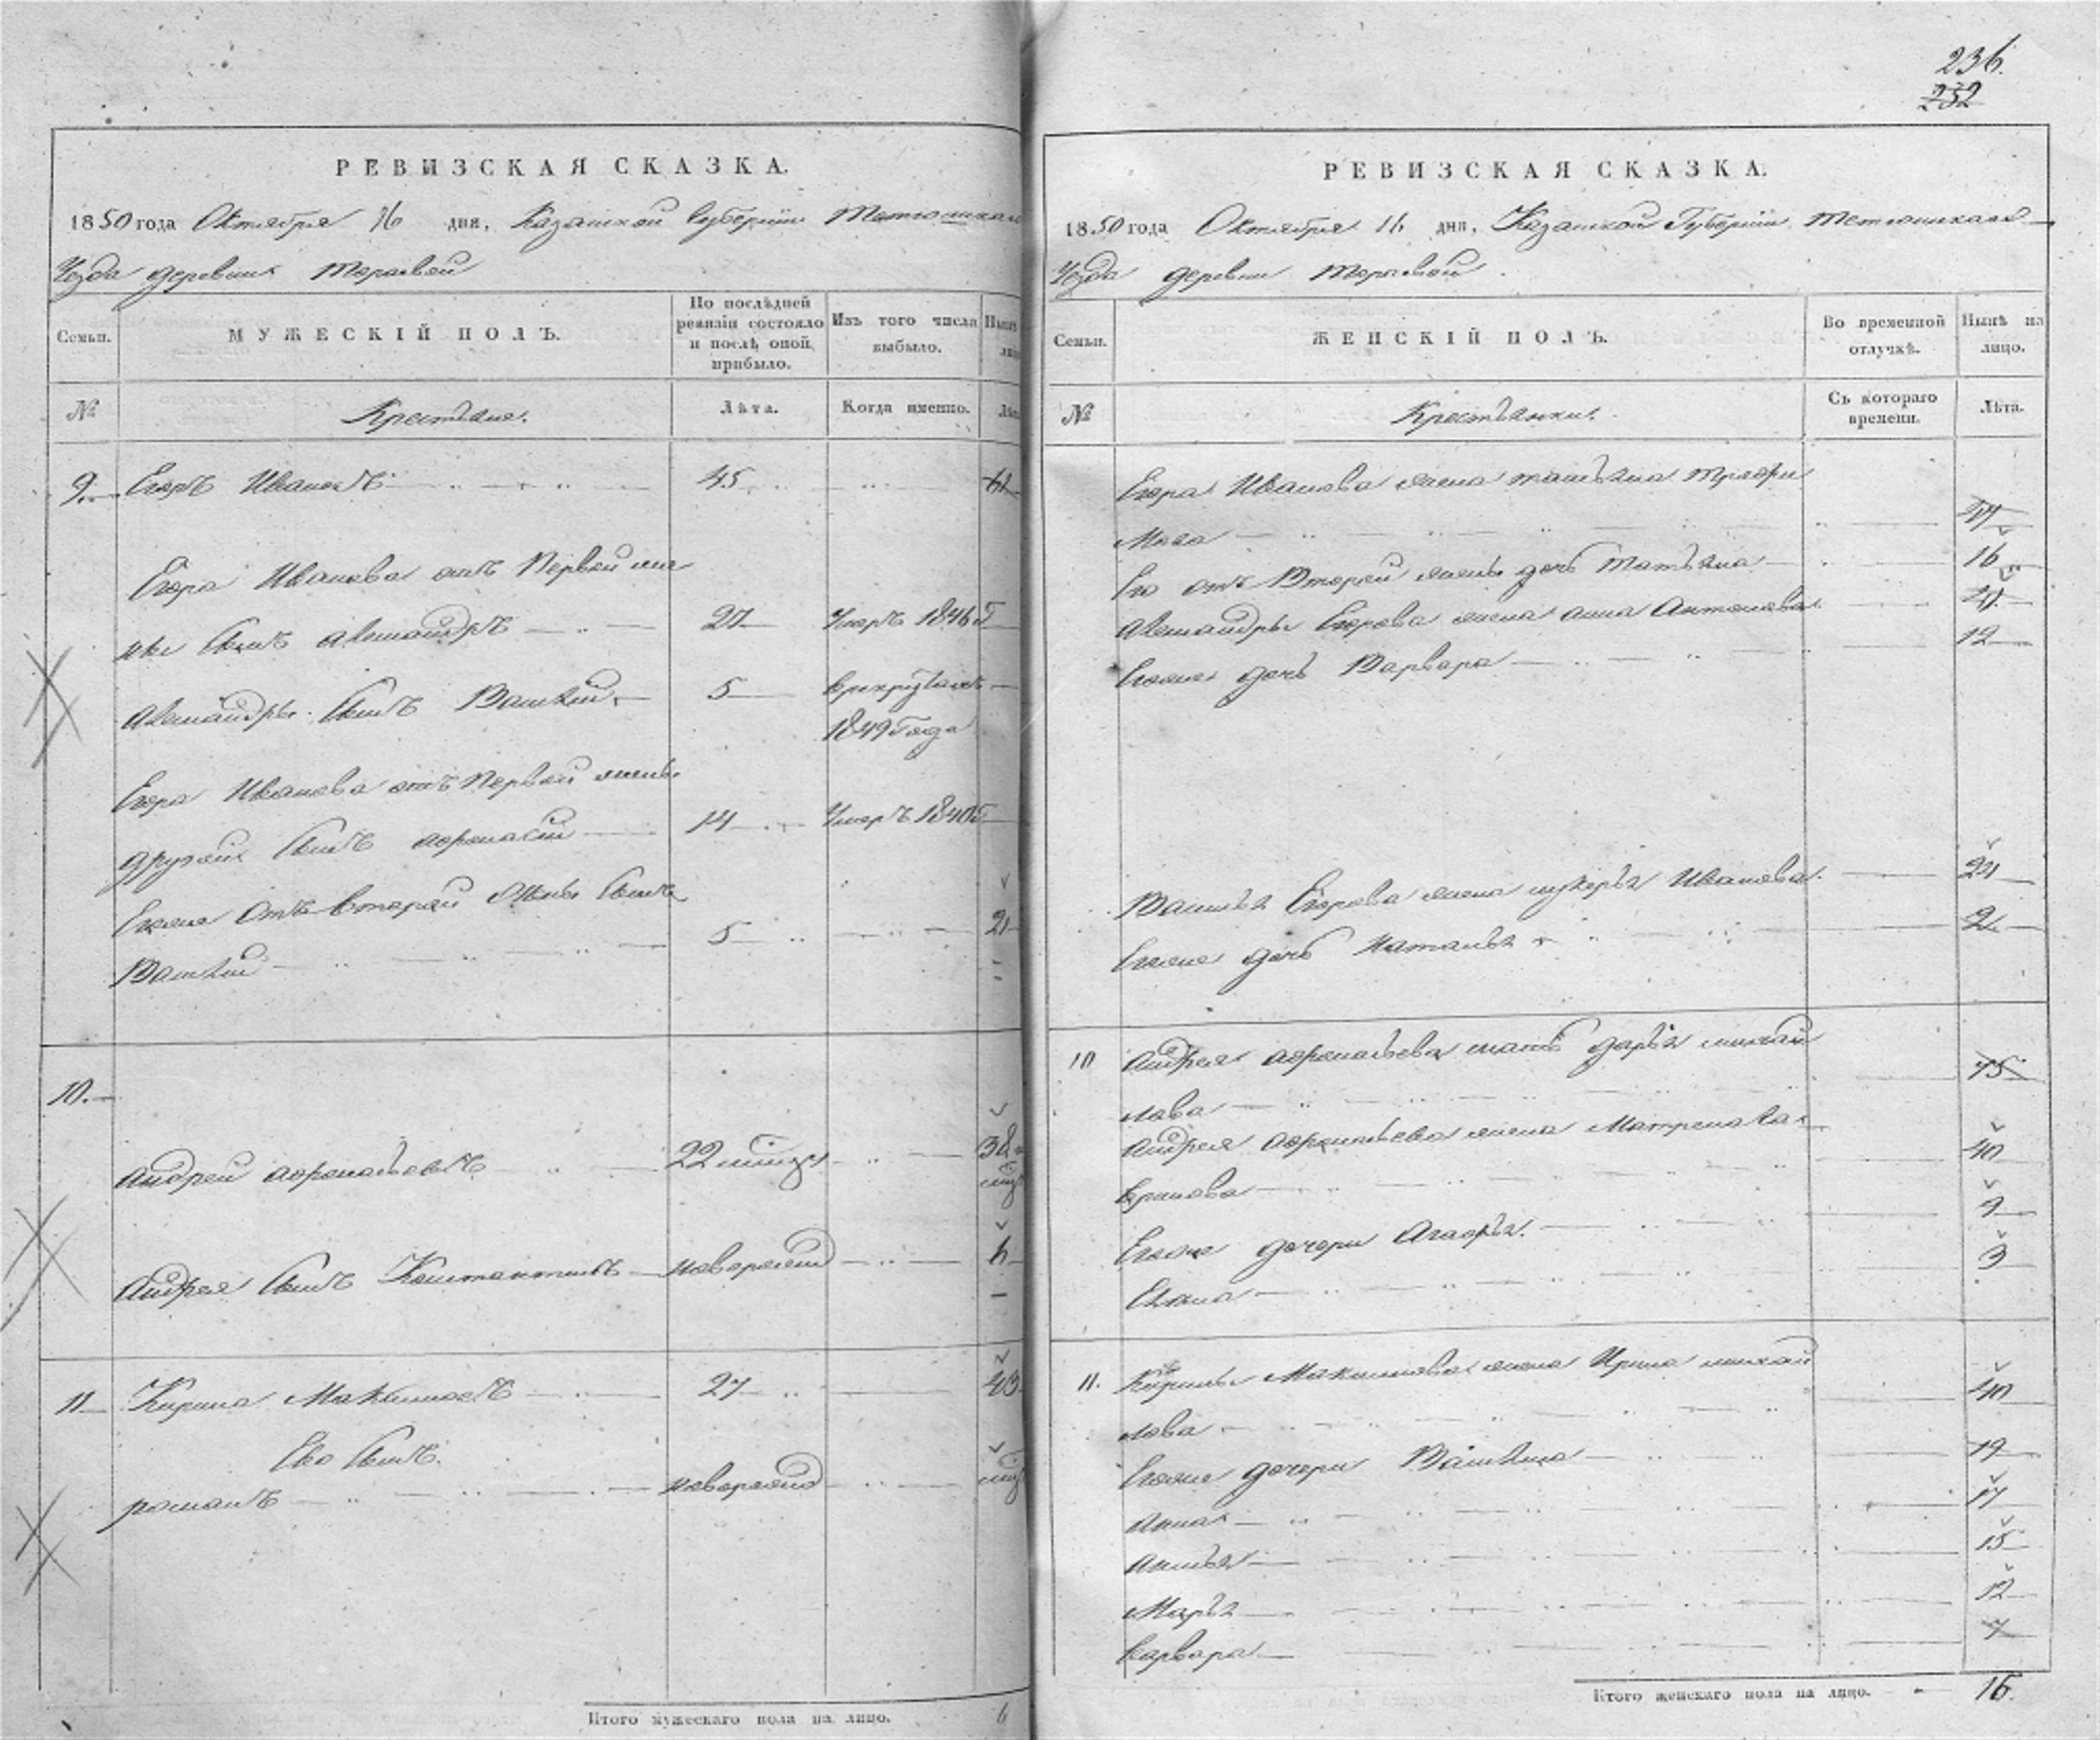 236.
232
РЕВИЗСКАЯ СКАЗКА.
1850 года Октября 16 дня, Казанской Губернiи Тетюшскаго
Уезда деревни
Семьи.
МУЖЕСКІЙ ПОЛЪ.
По послѣдней ревизіи состояло и послѣ оной прибыло.
Изъ того числа выбыло.
№
Крестьяне.
Лѣта.
Когда именно.
9. Егоръ Ивановъ 45 61
Егора Иванова отъ Первой же
ны Сынъ Александръ 27 Умеръ 1846 Г
Александры Сынъ Василій 5 в рекрутахъ
1849 Года
Егора Иванова отъ Первой жены
другой Сынъ Афонасій 14 Умеръ 1840 Г
Егоже Отъ второй жены Сынъ
Василій 5 21
10.
Андрей Афонасьевъ 22 38
Андрея Сынъ Констентинъ новорожденъ
11 Кирила Максимовъ 27 43
Ево Сынъ
романъ новорожденъ
Итого мужескаго пола на лицо. 6
РЕВИЗСКАЯ СКАЗКА.
1850 года Октября 16 дня, Казанской Губерніи Тетюшскаго
Уезда деревни
Семьи.
ЖЕНСКІЙ ПОЛЪ.
Во временной отлучкѣ.
Нынѣ на лицо.
№
Крестьянки.
Съ котораго времени.
Лѣта.
Егора Иванова жена татьяна трофи
мова
Ево отъ Второй жены дочь Татьяна 16
Александры Егорова жена анна Антонова
Егоже дочь Варвара 12
Василья Егорова жена Иванова
Егоже дочь Наталья 2
10 Андрея Афонасьева мать дарья михай
лова 75
Андрея Афонасьева жена Матрена
40
Егоже дочери Агафья 9
Елена 3
11. Кирилы Максимова жена Ирина михай
лова 40
Егоже дочери 19
Анна 17
15
Марья 12
варвара 7
Итого женскаго пола на лицо. 16.